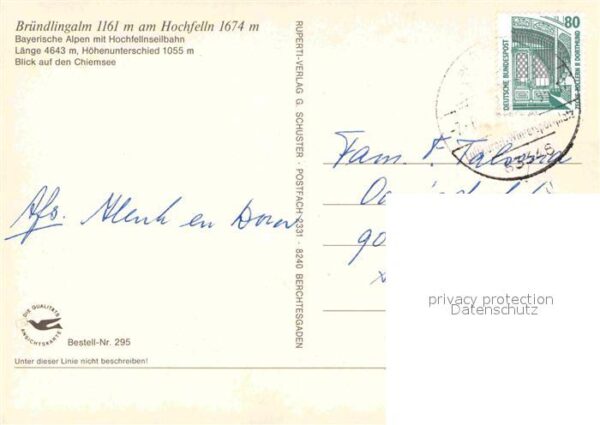 Bründlingalm 1161 m am Hochfelln 1674 m
Bayerische Alpen mit Hochfellnseilbahn
Länge 4643 m, Höhenunterschied 1055 m
Blick auf den Chiemsee
RUPERTI-VERLAG G. SCHUSTER · POSTFACH 2331 · 8240 BERCHTESGADEN
80
DEUTSCHE BUNDESPOST
ZECHE ZOLLERN II DORTMUND
Fam.
Afs. Henk en
privacy protection
Datenschutz
DIE QUALITÄTS
ANSICHTSKARTE
Bestell-Nr. 295
Unter dieser Linie nicht beschreiben!